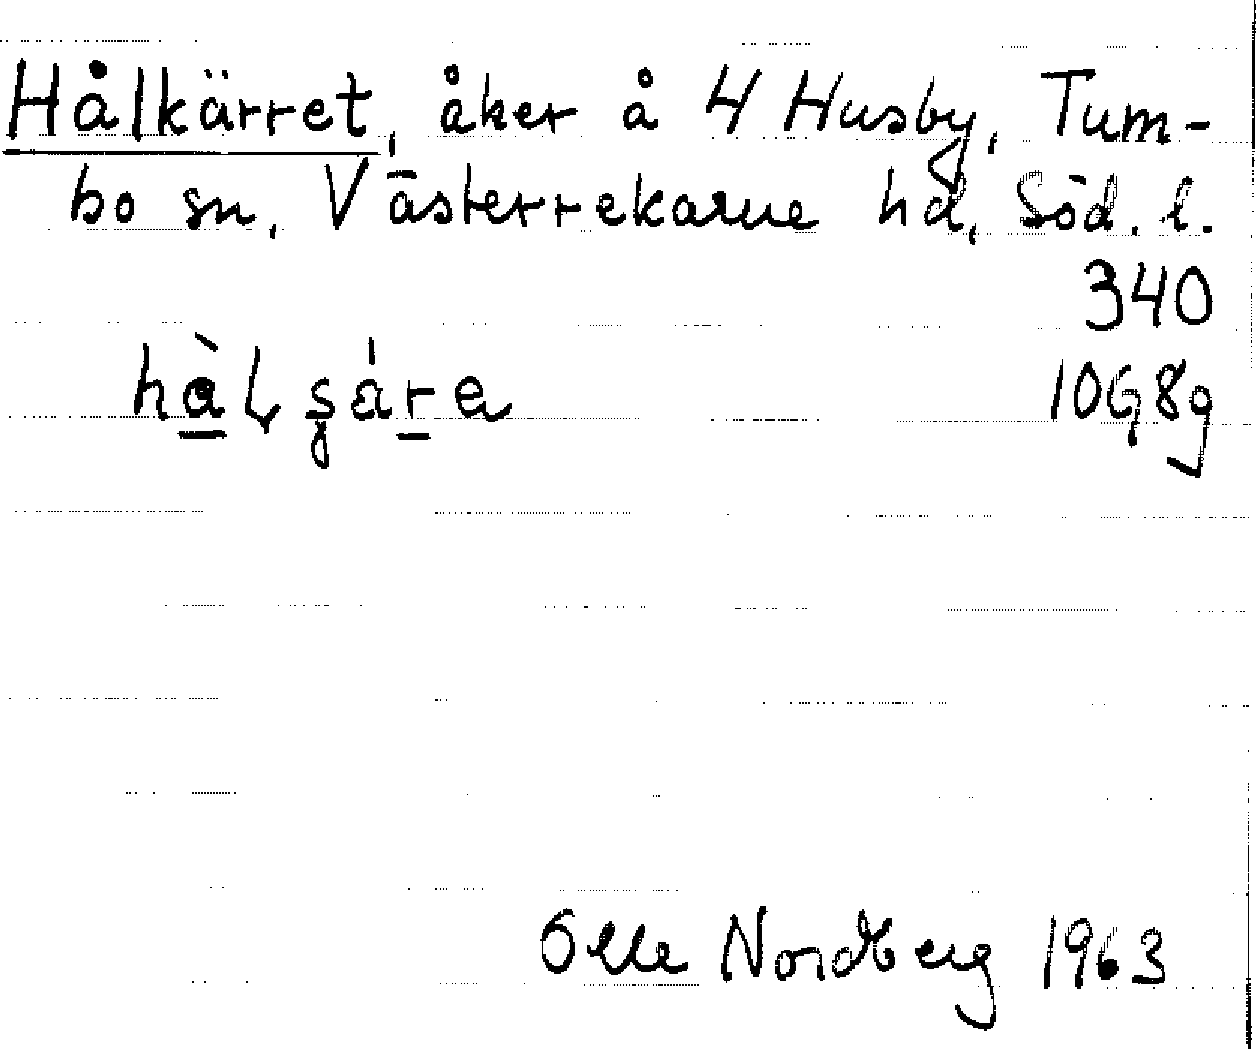 Hålkärret, åker å 4 Husby, Tum-
bo sn, Västerrekarne hd, Söd. l.
340
10G8g
Olle Nordberg 1963